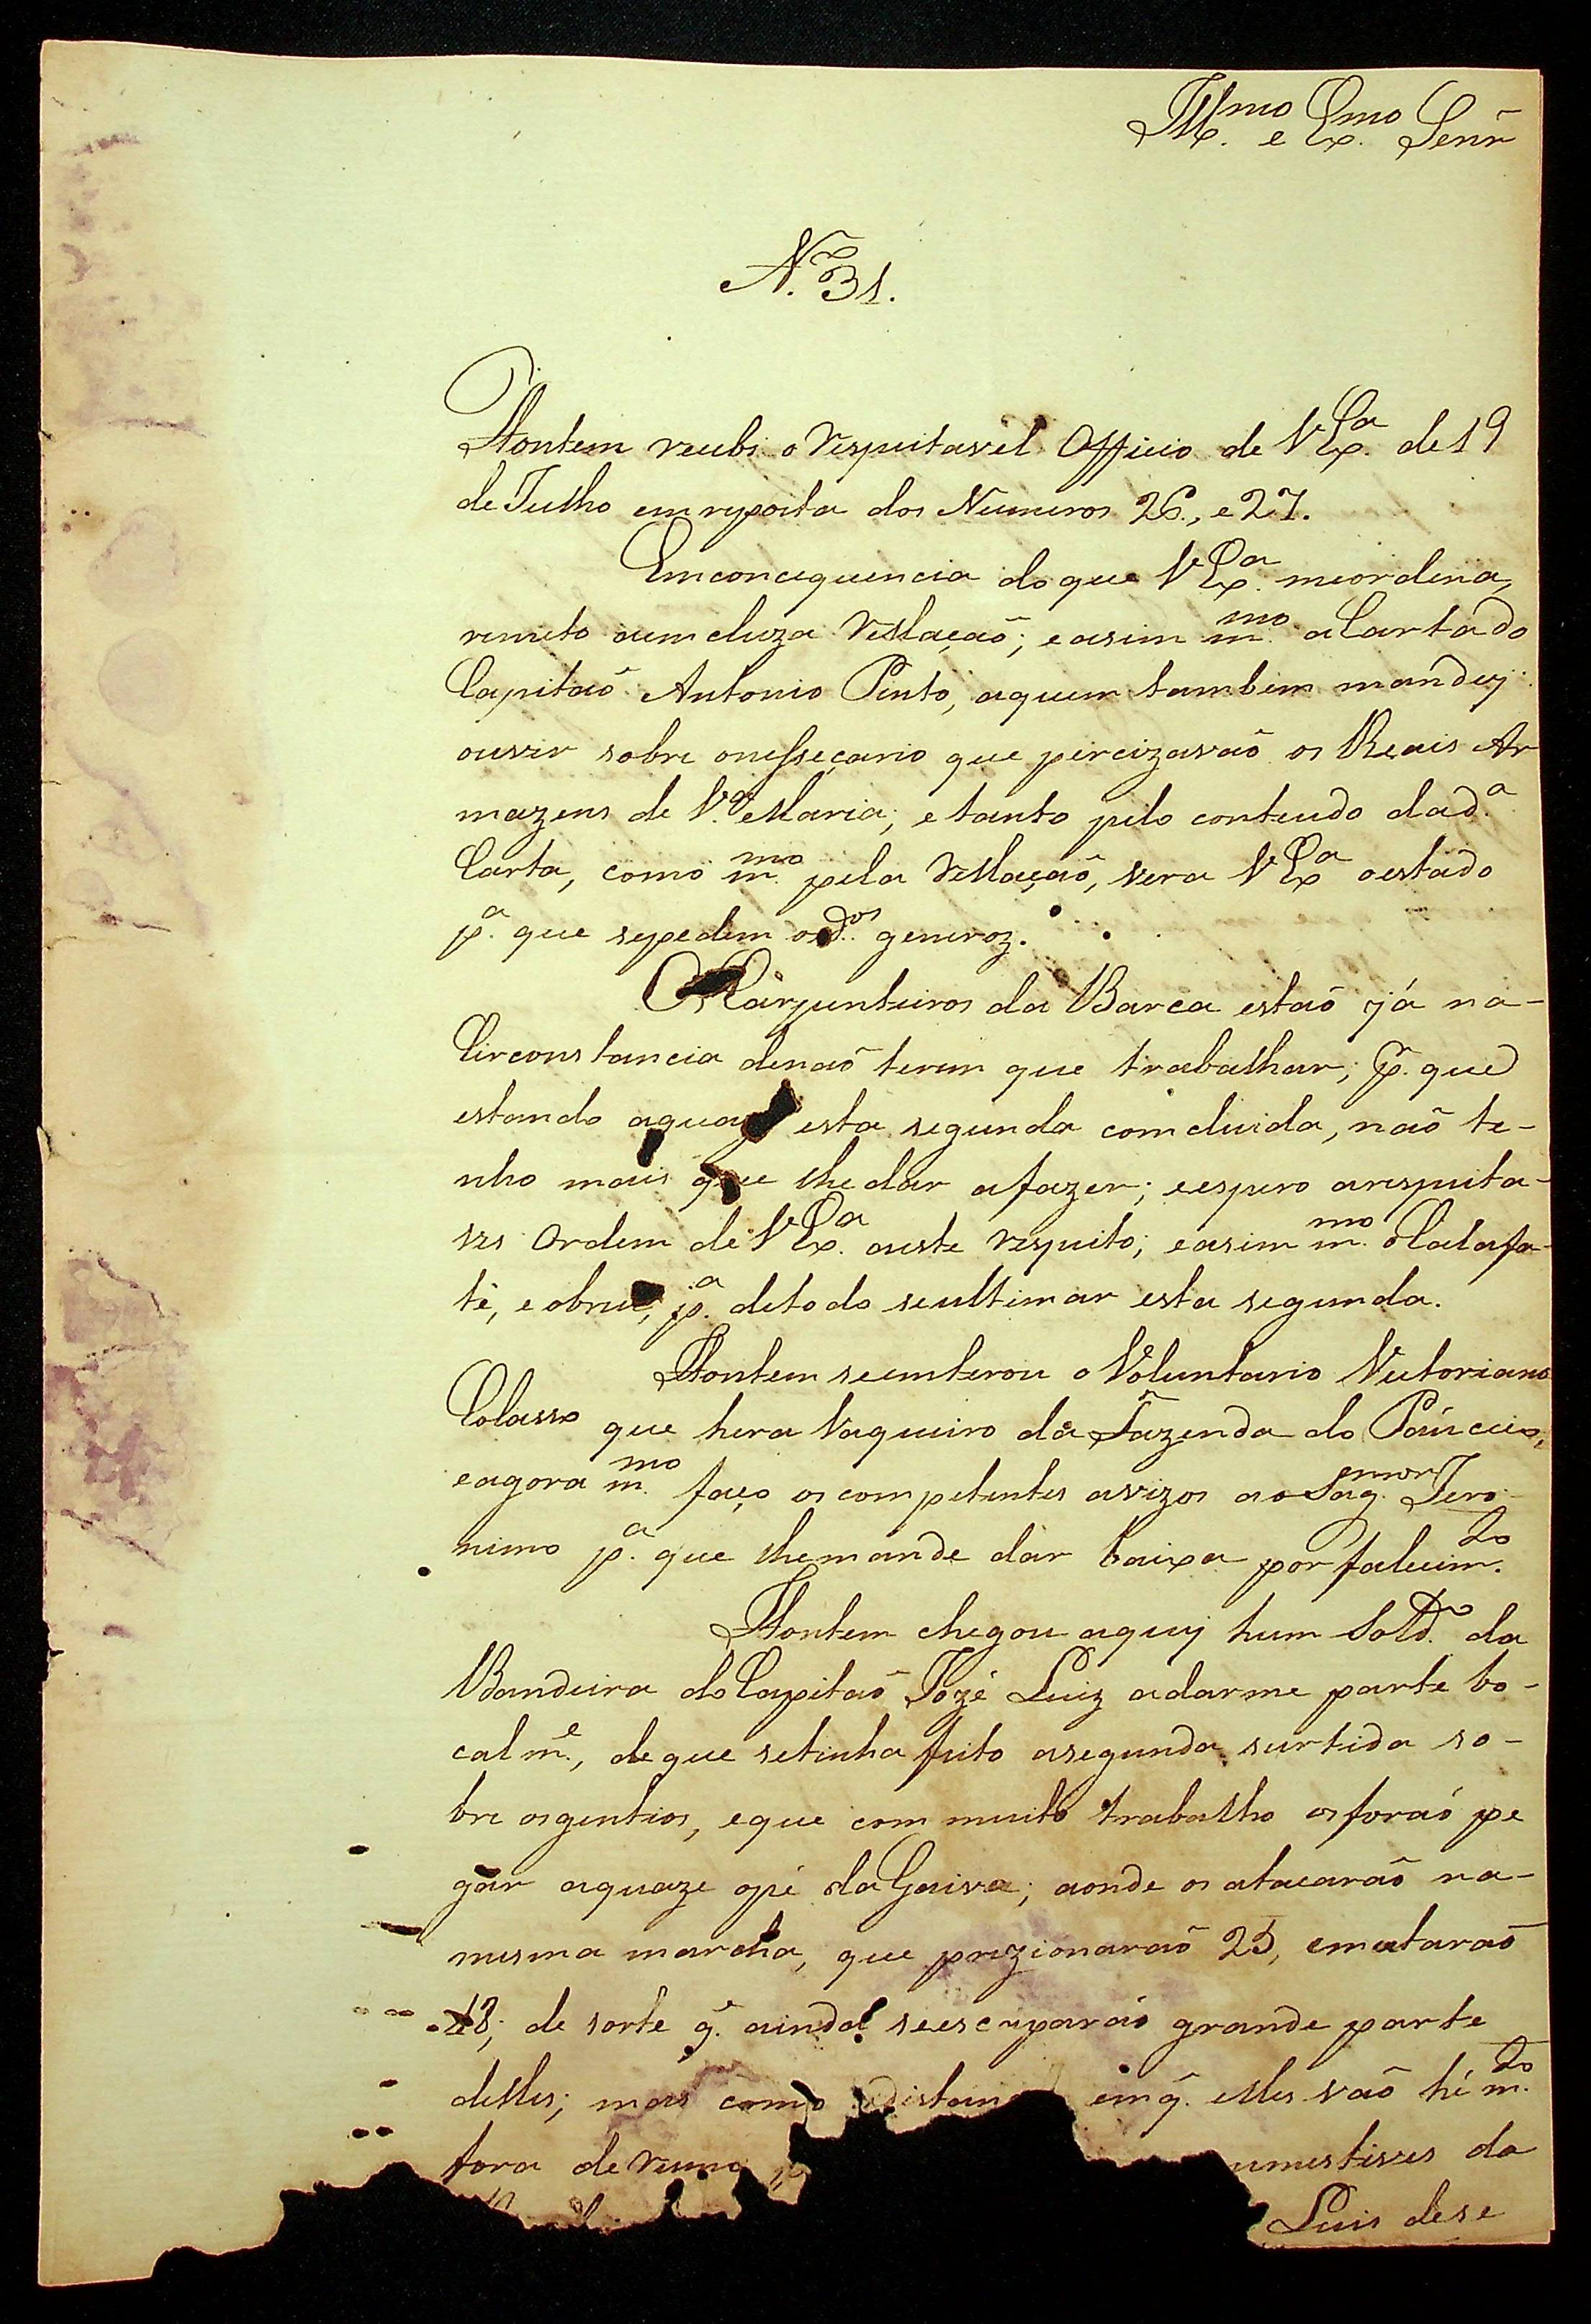 Ill.mo e Ex.mo Senr
N.º 31.
Hontem recebi o Respeitavel Officio de V Ex.a de 19
de Julho em resposta dos Numeros 26., e 27.
Emconcequencia do que V Ex.a meordena,
remeto aemcluza Rellaçaõ; e asim m.mo aCarta do
Capitaõ Antonio Pinto, aquem tambem mandey
ouvir sobre onesseçario que percizavaõ os Reais Ar
mazens de V.a Maria; e tanto pelo contendo dad.a
Carta, como m.mo pela Rellaçaõ, vera V Ex.a oestado
p.a que sepedem os d.os generoz.
Os Carpenteiros da Barca estaõ já na-
Circonstancia denaõ terem que trabalhar; p.r que
estando aquazy esta segunda comcluida, naõ te-
nho mais que lhe dar afazer; eespero arespeita-
vel Ordem de V Ex.a aeste respeito; easim m.mo oCalafa-
te, e obreu, p.a detodo seultimar esta segunda.
Hontem seenterou o Voluntario Victoriano
Colasso que hera Vaqueiro da Fazenda do Páinceis,
eagora m.mo faço os competentes avizos ao Sarg. emor Jero-
nimo p.a que lhemande dar baixa por falecim.to
Hontem chegou aquy hum Sold.o da
Bandeira do Capitaõ Jozé Luiz adarme parte bo-
calm.e, de que setinha feito asegunda surtida so-
bre osgentios, eque com muito trabalho osforaõ pe
gar aquaze opé da Gaiva; aonde os atacaraõ na-
mesma marcha, que prizionaraõ 25, ematoraõ
18; de sorte q. ainda seescaparaõ grande parte
delles; mas como edistan emq. elles vaõ hé m.to
fora de rumo
umestives da
Luis dese